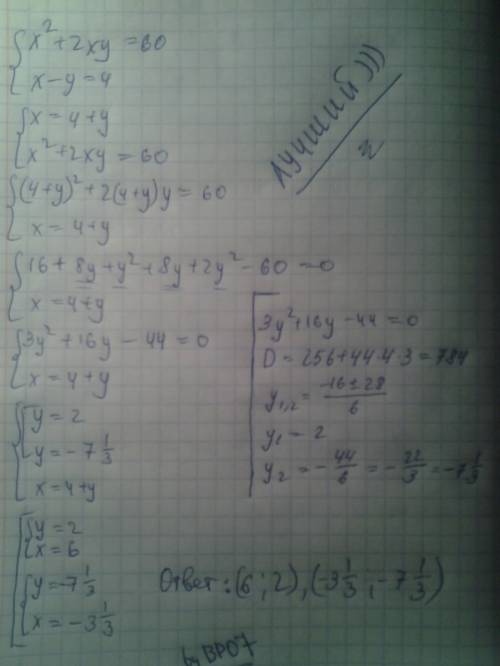 x² + 2xy = 60
x - y = 4
x = 4 + y
x² + 2xy = 60
(4+y)² + 2(4+y)y = 60
x = 4+y
16 + 8y + y² + 8y + 2y² - 60 = 0
x = 4+y
3y² + 16y - 44 = 0
x = 4 + y
y = 2
y = -7 1/3
x = 4+y
y = 2
x = 6
y = -7 1/3
x = -3 1/3
Лучший )))
3y² + 16y - 44 = 0
D = 256 + 44·4·3 = 784
y₁,₂ = -16±28/6
y₁ = 2
y₂ = -44/6 = -22/3 = -7 1/3
Ответ: (6; 2), (-3 1/3; -7 1/3)
by BPO7